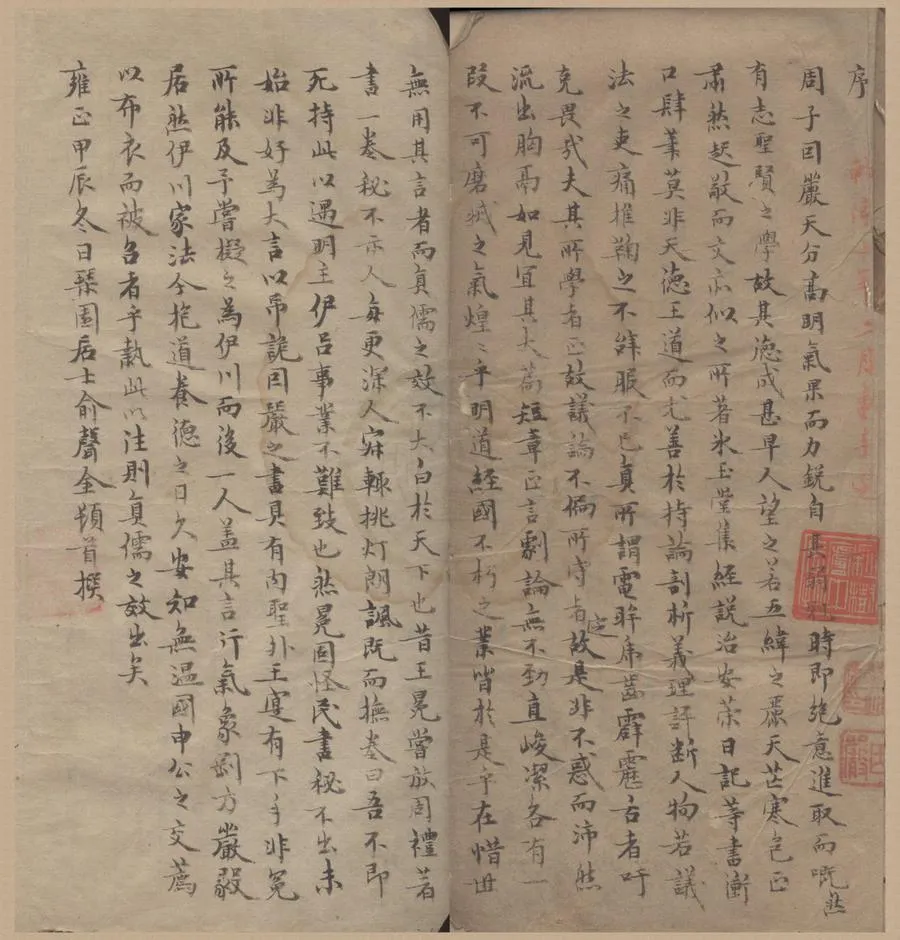 序
周子回巖天分髙明氣果而力銳自其時即絶意進取而嘅然
有志聖賢之學故其德成甚早人望之若五緯之麗天芒寒色正
肅然起敬而文亦似之所著氷玉堂集經說治安策日記等書衡
口肆筆莫非天德王道而尤善於持論剖析義理評斷人物若議
法之吏痛推鞠之不辞服不已真所謂電眸虎齒霹靂舌者吁
克畏哉夫其所學者正故議論不偏所守者定故是非不惑而沛然
流出胸鬲如見冝其大篇短章正言劇論無不勁直峻潔各有一
段不可磨滅之氣煌〻乎明道經國不朽之業皆於是乎在惜世
無用其言者而真儒之效不大白於天下也昔王冕嘗放周禮著
書一卷秘不示人每更深人寂輙挑灯朗諷既而撫卷曰吾不即
死持此以遇明主伊吕事業不難致也然冕固怪民書秘不出未
始非好為大言以吊詭回巖之書具有内聖外王寔有下手非冕
所能及予嘗擬之為伊川而後一人盖其言行氣象剛方嚴毅
居然伊川家法今抱道養德之日久安知無温國申公之交薦
以布衣而被召者乎執此以往則真儒之效出矣
雍正甲辰冬日琹園居士俞聲金頓首撰